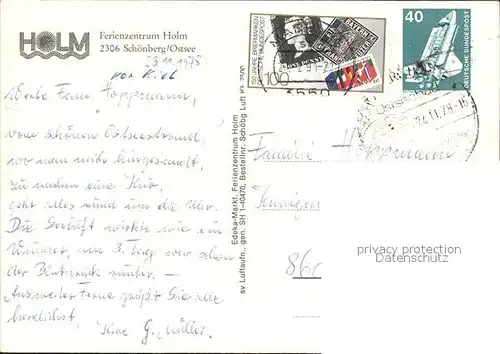 HOLM
Ferienzentrum Holm
2306 Schönberg/Ostsee
23.11.1978
von Kiel
Werte Fam. Hoppmann,
vom schönen Ostseestrand,
wo man mich hingesandt,
zu machen eine Kur,
geht alles rund um die Uhr.
Die Seeluft wirkte wie ein
Wunder, am 3. Tag war schon
der Blutdruck runter. –
Aus weiter Ferne grüßt Sie alle
herzlichst,
G. Müller.
Edeka-Markt, Ferienzentrum Holm
sv Luftaufn., gen. SH 1-40470, Bestellnr. Schöbg Luft
150 JAHRE BRIEFMARKEN
DEUTSCHE BUNDESPOST
100
40
DEUTSCHE BUNDESPOST
Ostsee
24.11.78-15
Familie Hoppmann
privacy protection
Datenschutz